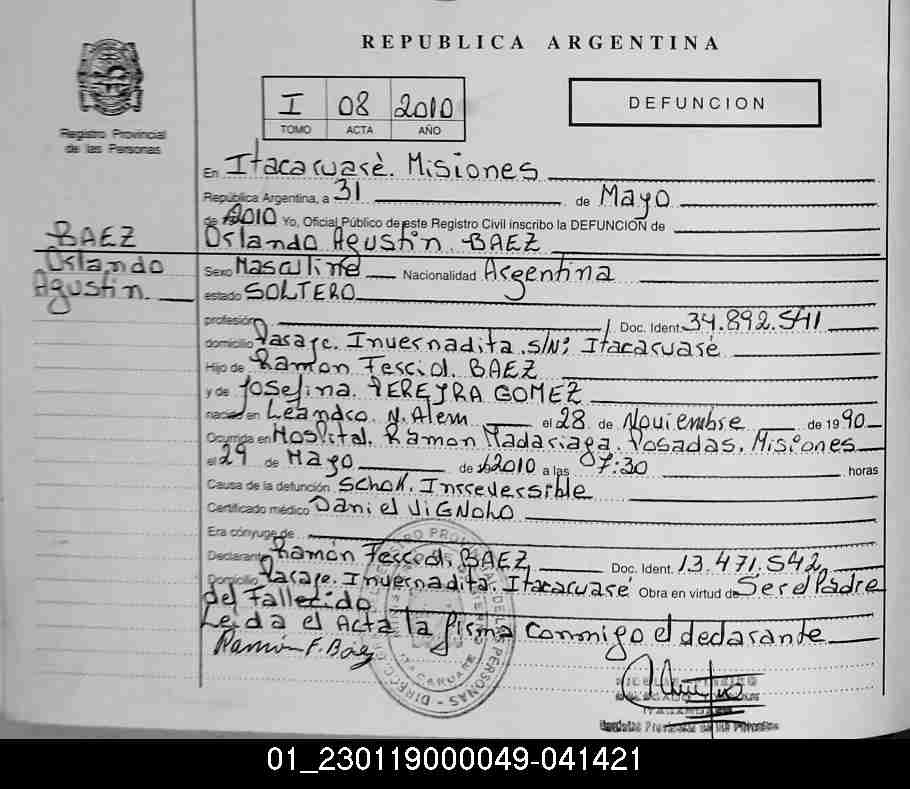 REPUBLICA ARGENTINA
Registro Provincial
de las Personas
I 08 2010
TOMO ACTA AÑO
DEFUNCION
En Itacaruarè. Misiones
República Argentina, a 31 de Mayo
de 2010 Yo, Oficial Público de este Registro Civil inscribo la DEFUNCION de
Orlando Agustin BAEZ
BAEZ
Orlando
Agustin
Sexo Masculino Nacionalidad Argentina
estado SOLTERO
profesión Doc. Ident. 34.892.541
domicilio Pasaje. Invernadita. s/Nº Itacaruaré
Hijo de Ramon BAEZ
y de Josefina. PEREYRA GOMEZ
nacido en Leandro. N. Alem el 28 de Noviembre de 1990
Ocurrida en Hospital. Ramon Madariaga. Posadas. Misiones
el 29 de Mayo de 2010 a las 07:30 horas
Causa de la defunción Schok. Irreversible
Certificado médico Daniel
Era cónyuge de
Declarante Ramón BAEZ Doc. Ident. 13.471.542
Domicilio Pasaje. Invernadita. Itacaruaré Obra en virtud de Ser el Padre
del Fallecido
Leida el Acta la firma conmigo el declarante
Ramón F. Báez
ITACARUARE
PERSONAS
01_230119000049-041421